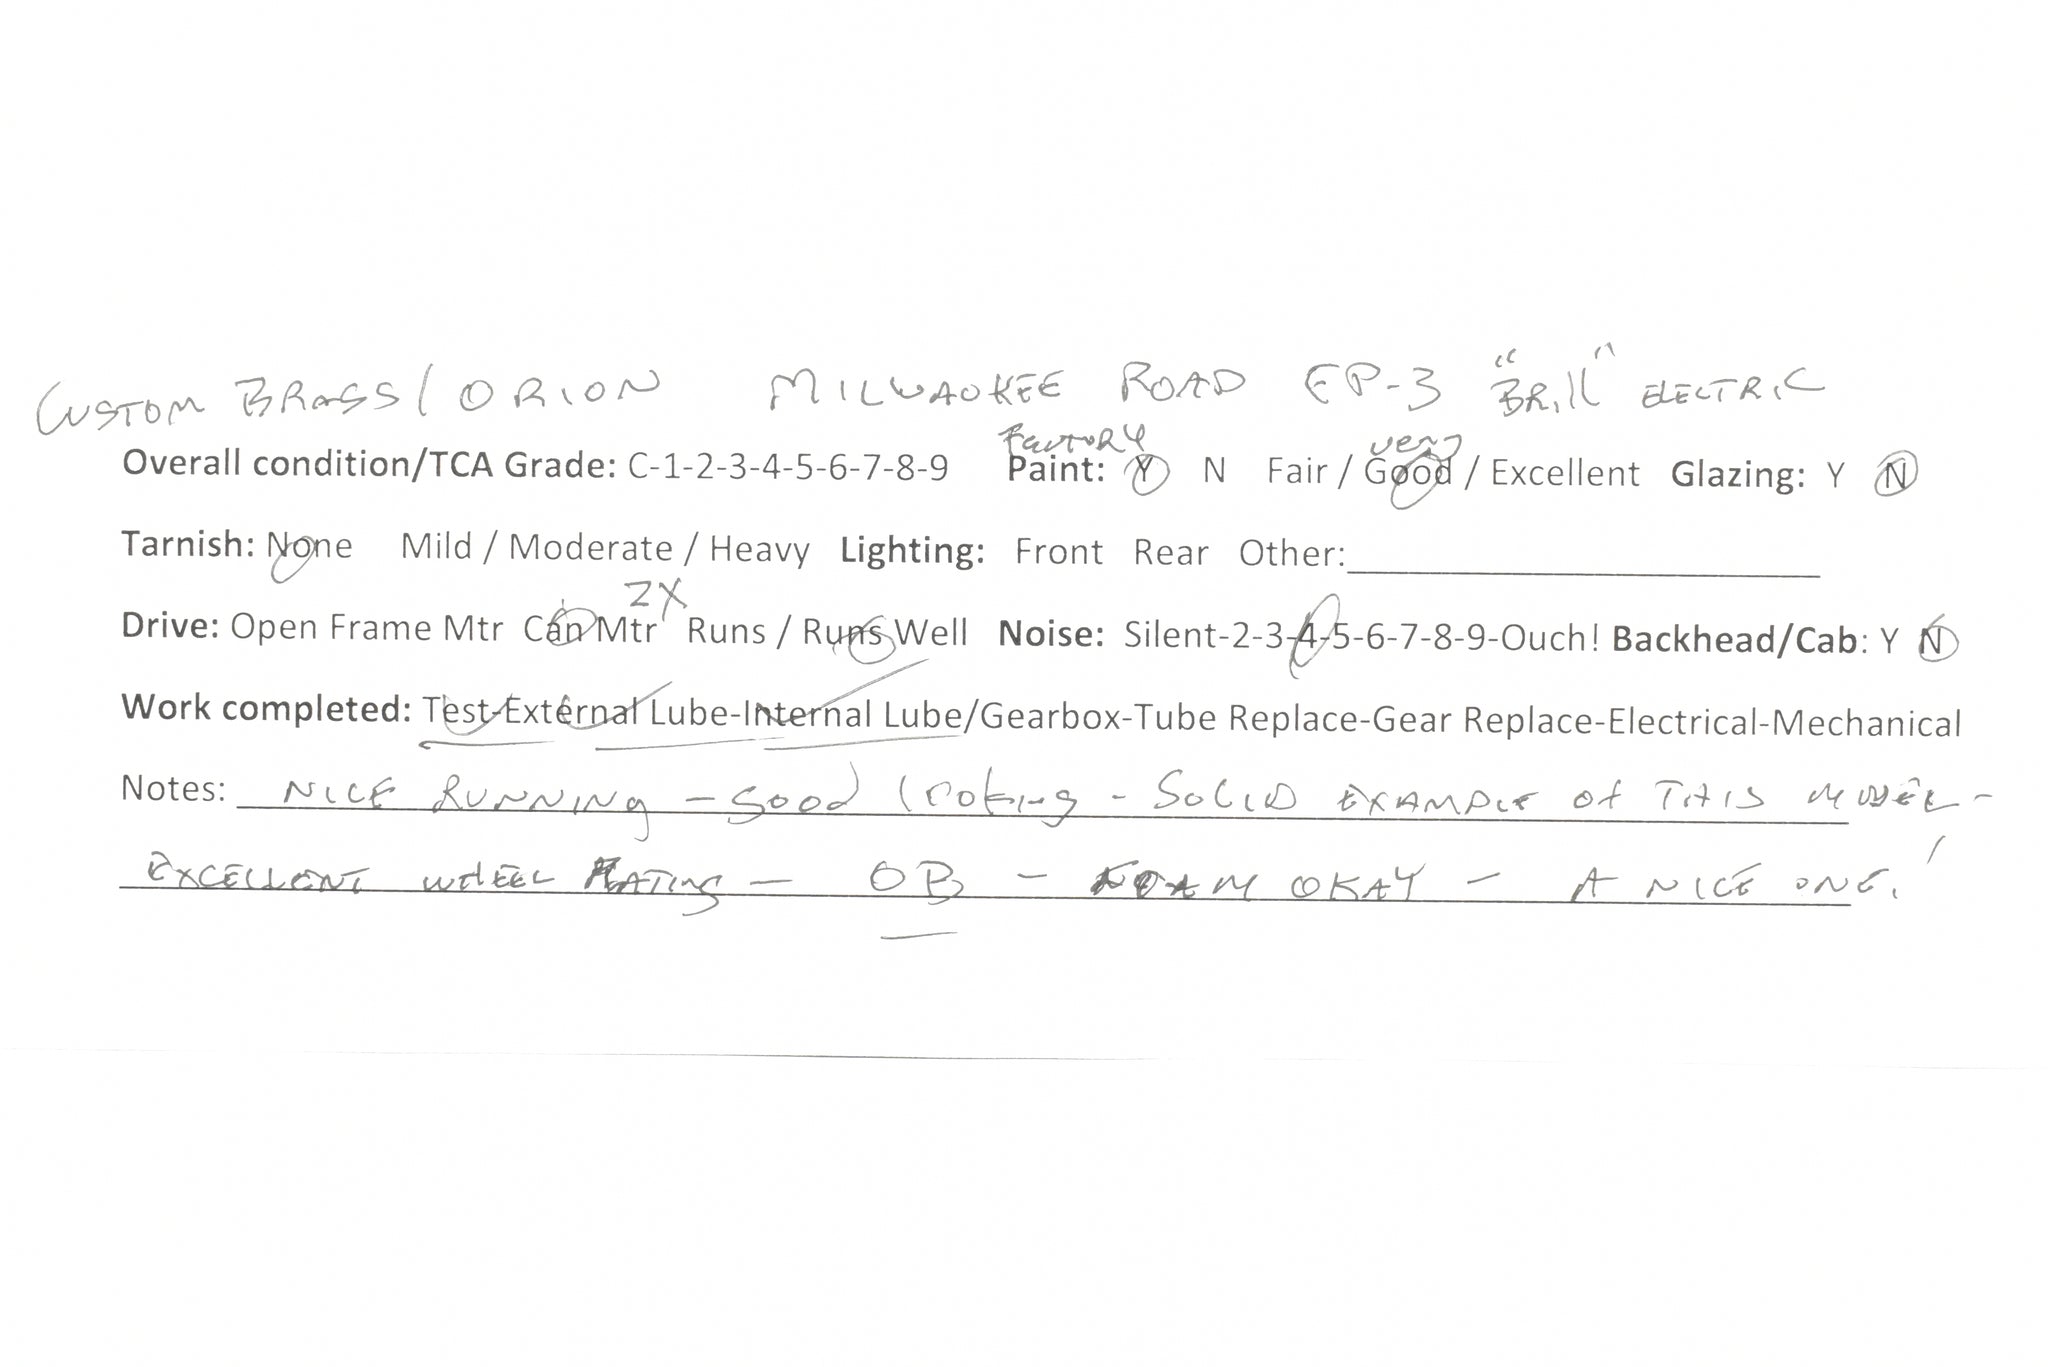 CUSTOM BRASS/ORION MILWAUKEE ROAD EP-3 "BRill" ELECTRIC
FACTORY very
Overall condition/TCA Grade: C-1-2-3-4-5-6-7-8-9 Paint: Y N Fair / Good / Excellent Glazing: Y N
Tarnish: None Mild / Moderate / Heavy Lighting: Front Rear Other:
2X
Drive: Open Frame Mtr Can Mtr Runs / Runs Well Noise: Silent-2-3-4-5-6-7-8-9-Ouch! Backhead/Cab: Y N
Work completed: Test-External Lube-Internal Lube/Gearbox-Tube Replace-Gear Replace-Electrical-Mechanical
Notes: NICE RUNNING - good looking - SOLID EXAMPLE of THIS MODEL -
EXCELLENT WHEEL PLATING - OB - FOAM OKAY - A NICE ONE!